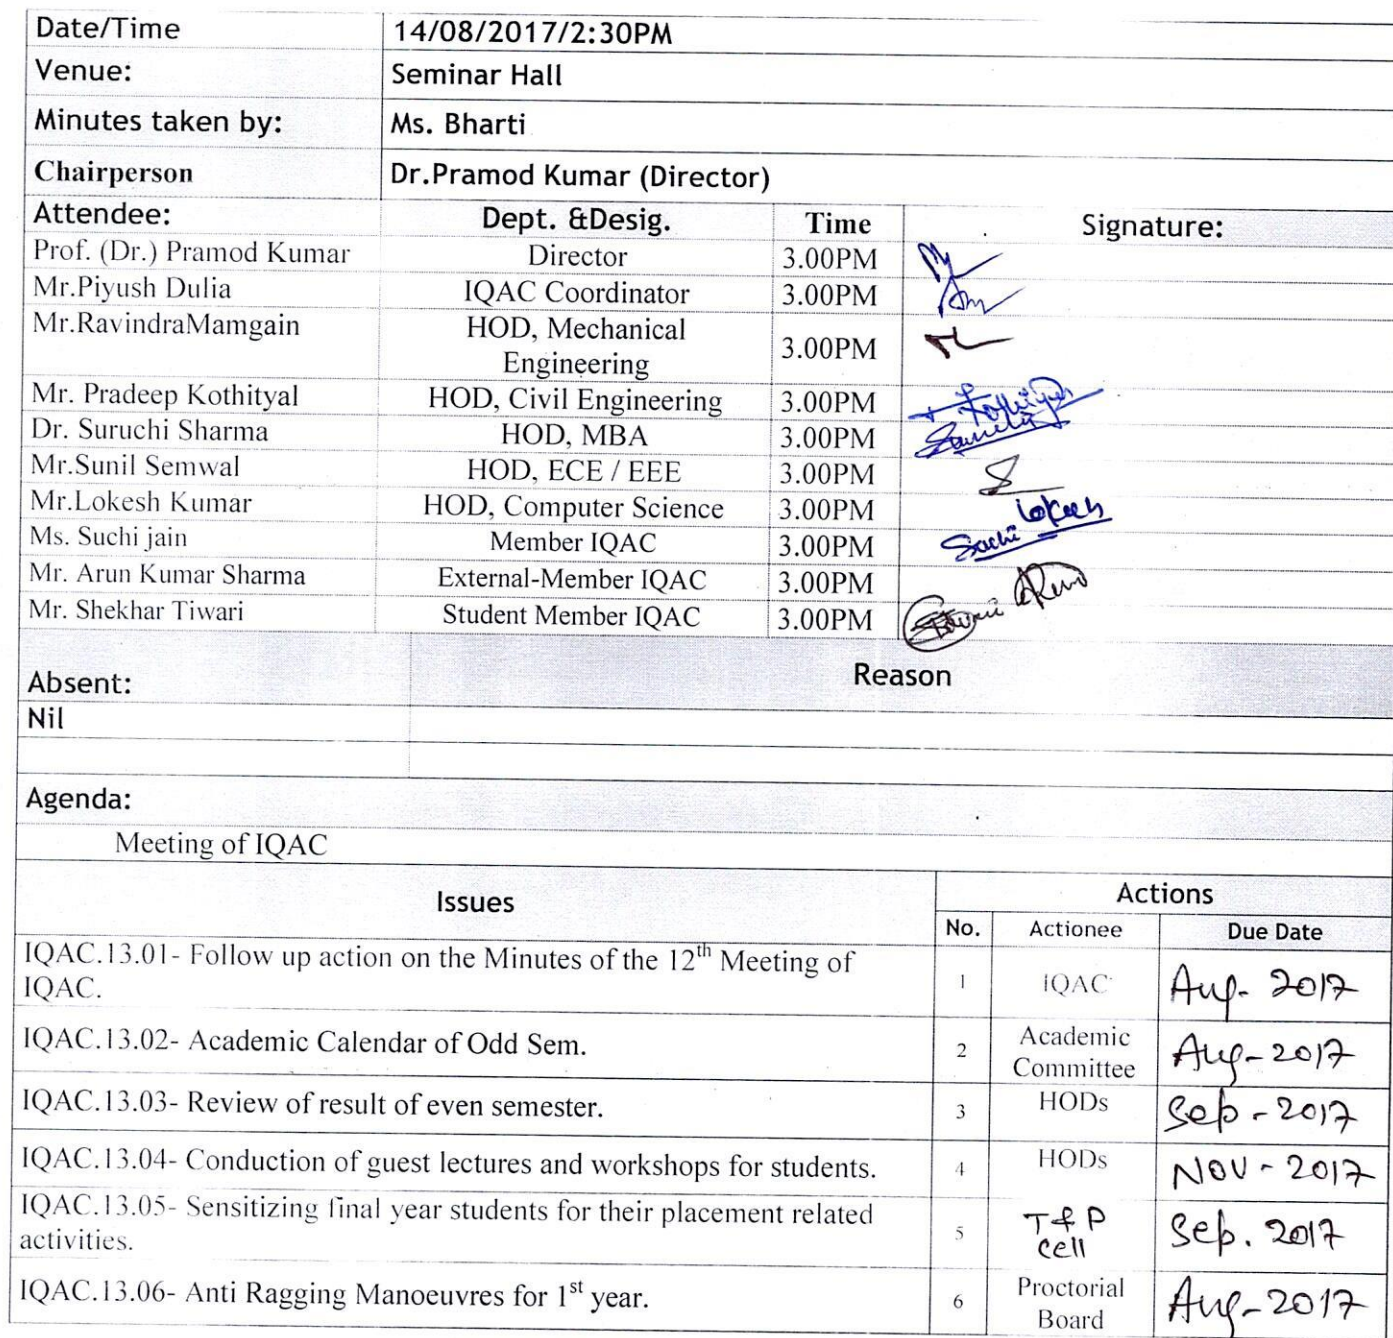 Date/Time 14/08/2017/2:30PM
Venue: Seminar Hall
Minutes taken by: Ms. Bharti
Chairperson Dr.Pramod Kumar (Director)
Attendee: Dept. &Desig. Time Signature:
Prof. (Dr.) Pramod Kumar Director 3.00PM
Mr.Piyush Dulia IQAC Coordinator 3.00PM
Mr.RavindraMamgain HOD, Mechanical
Engineering 3.00PM
Mr. Pradeep Kothityal HOD, Civil Engineering 3.00PM
Dr. Suruchi Sharma HOD, MBA 3.00PM
Mr.Sunil Semwal HOD, ECE / EEE 3.00PM
Mr.Lokesh Kumar HOD, Computer Science 3.00PM Lokesh
Ms. Suchi jain Member IQAC 3.00PM Suchi
Mr. Arun Kumar Sharma External-Member IQAC 3.00PM
Mr. Shekhar Tiwari Student Member IQAC 3.00PM
Absent: Reason
Nil
Agenda:
Meeting of IQAC
Issues Actions
No. Actionee Due Date
IQAC.13.01- Follow up action on the Minutes of the 12th Meeting of
IQAC. 1 IQAC Aug- 2017
IQAC.13.02- Academic Calendar of Odd Sem. 2 Academic
Committee Aug-2017
IQAC.13.03- Review of result of even semester. 3 HODs Sep-2017
IQAC.13.04- Conduction of guest lectures and workshops for students. 4 HODs Nov-2017
IQAC.13.05- Sensitizing final year students for their placement related
activities. 5 T & P
cell Sep. 2017
IQAC.13.06- Anti Ragging Manoeuvres for 1st year. 6 Proctorial
Board Aug-2017